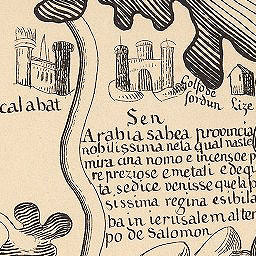 calabat
Golfo de
fordun
Lize
Sen
Arabia sabea provincia
nobilissima nela qual naste
mira cina nomo e incenso e p
re preziose e metali e de qu
ta sedice venisse quela p
sissima regina e sibila
ba in ierusalem al tem
po de Salomon